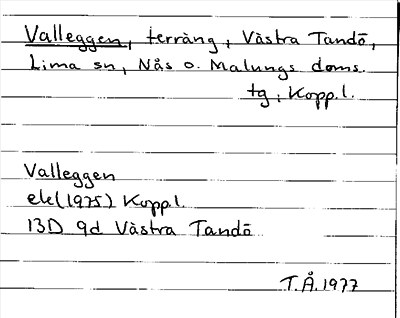 Valleggen, terräng, Västra Tandö,
Lima sn, Nås o. Malungs doms.
tg, Kopp.l.
Valleggen
ek(1975) Kopp.l.
13D 9d Västra Tandö
T.Å.1977